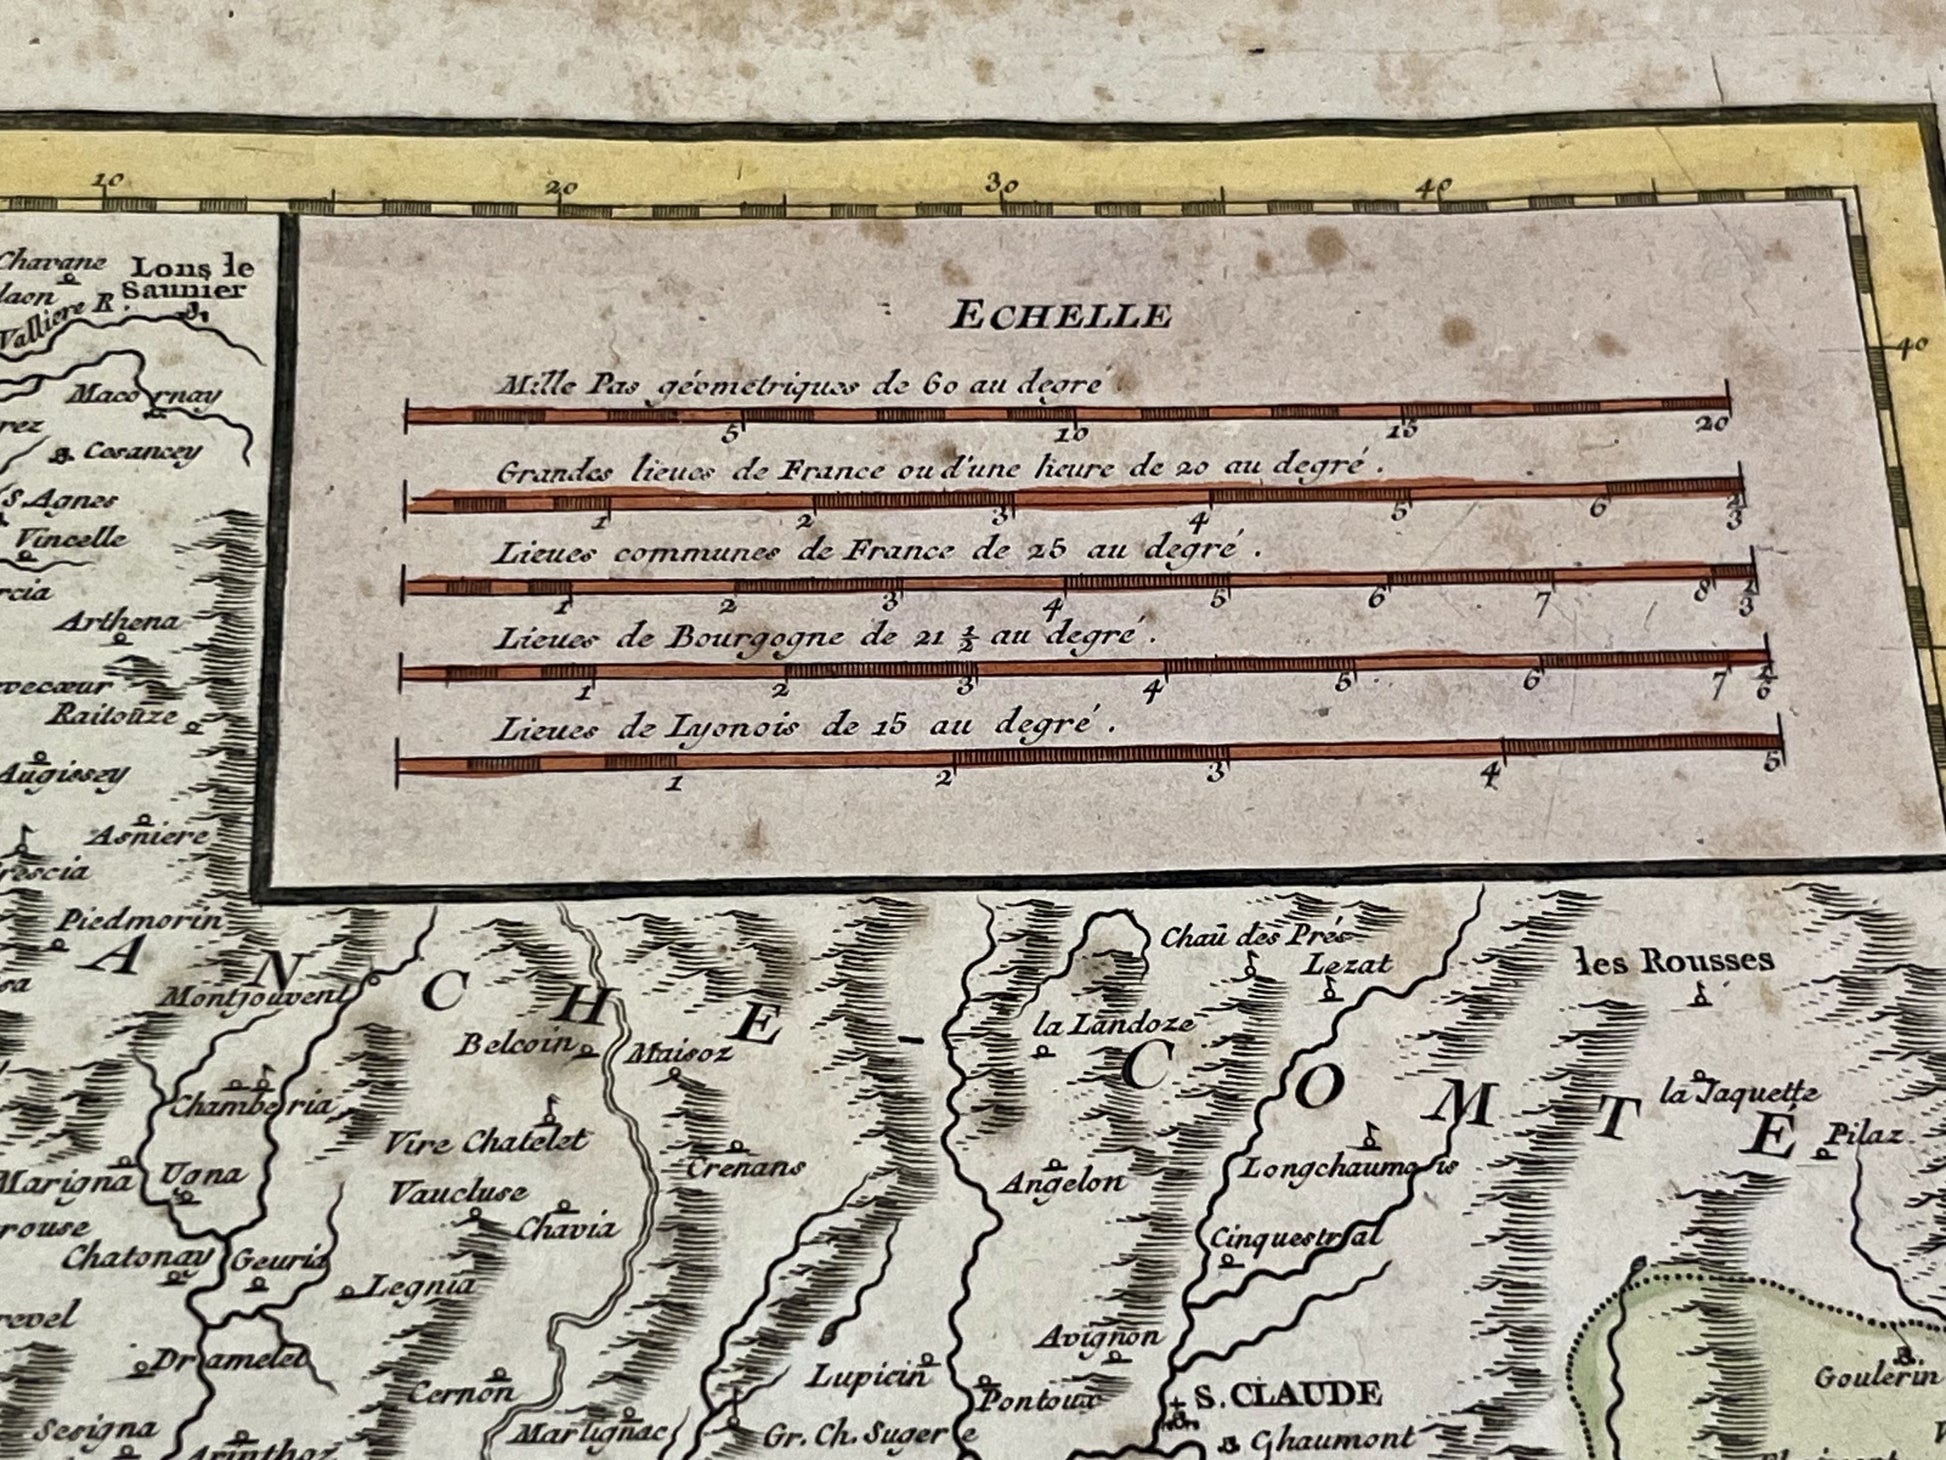 10 20 30 40
40
Chavane
Lons le
Saunier
Valliere R.
Macornay
Cosancey
S. Agnes
Vincelle
Arthena
Raitouze
Augissey
Asniere
Piedmorin
ECHELLE
Mille Pas géometriques de 60 au degré
5 10 15 20
Grandes lieues de France ou d'une heure de 20 au degré.
1 2 3 4 5 6 2/3
Lieues communes de France de 25 au degré.
1 2 3 4 5 6 7 8 1/3
Lieues de Bourgogne de 21 1/2 au degré.
1 2 3 4 5 6 7 1/6
Lieues de Lyonois de 15 au degré.
1 2 3 4 5
ANCHE-COMTÉ
Chau des Prés
Lezat
les Rousses
Montjouvent
Belcoin
Maisoz
la Landoze
la Jaquette
Pilaz
Chamberia
Vire Chatelet
Crenans
Longchaumois
Marigna
Ugna
Vaucluse
Angelon
Chavia
Cinquestral
Chatonay
Geuria
Legnia
Dramelet
Avignon
Lupicin
Goulerin
Cernon
Pontoux
S. CLAUDE
Sesigna
Martignac
Gr. Ch. Suger
Ghaumont
Arinthoz